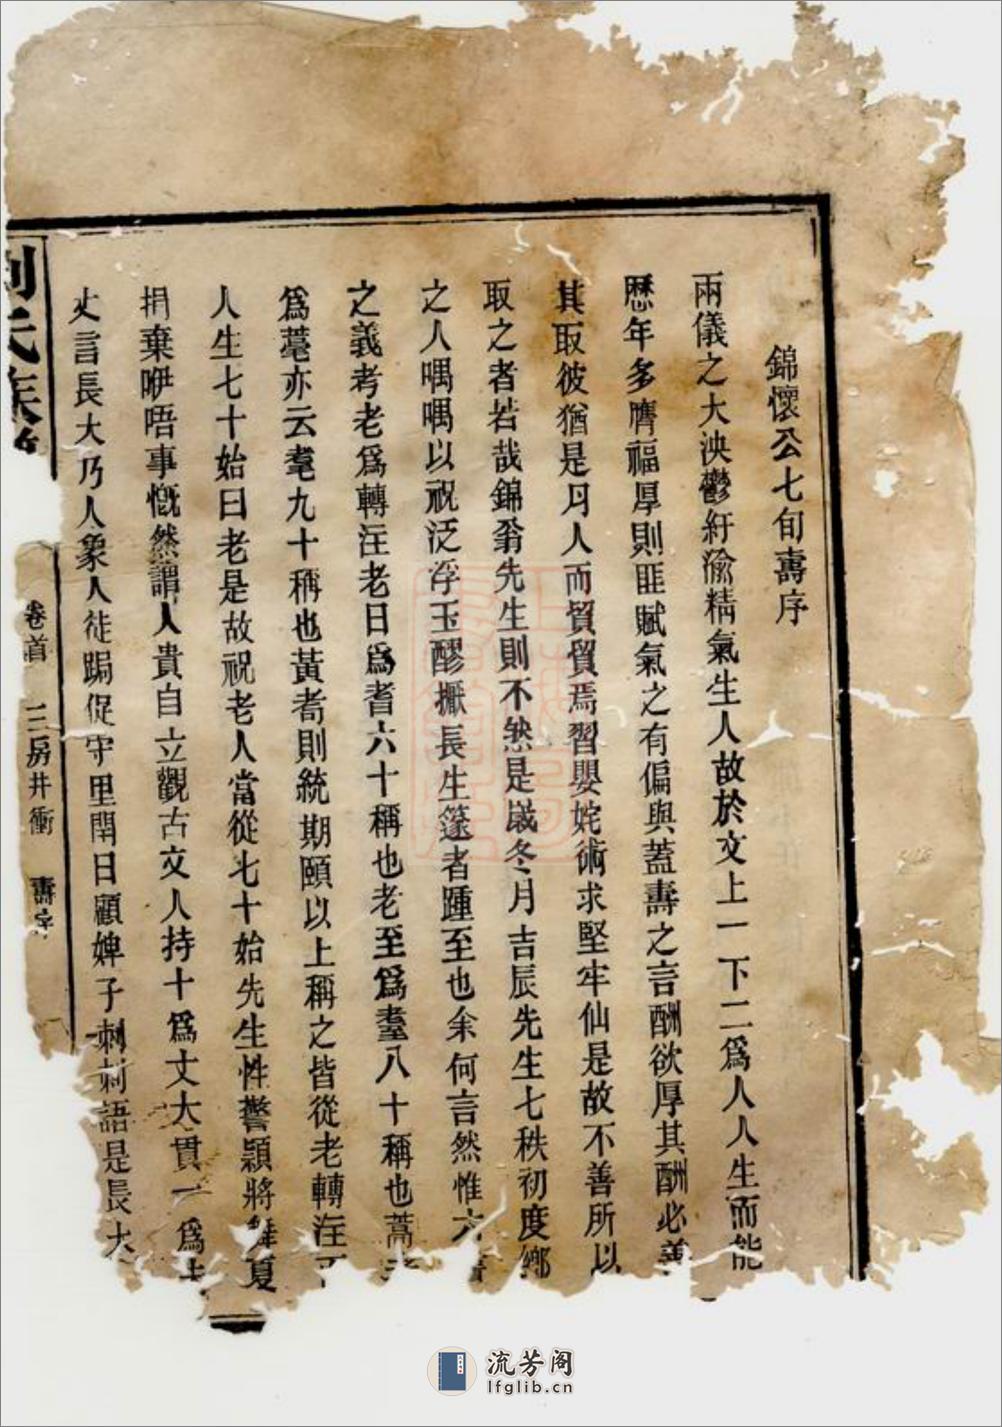 錦懷公七旬壽序
兩儀之大泱鬱紆渝精氣生人故於文上一下二爲人人生而能
歷年多膺福厚則匪賦氣之有偏與蓋壽之言酬欲厚其酬必善
其取彼猶是月人而貿貿焉習嬰姹術求堅牢仙是故不善所以
取之者若哉錦翁先生則不然是歲冬月吉辰先生七秩初度鄉
之人喁喁以祝泛浮玉醪摭長生籙者踵至也余何言然惟六書
之義考老爲轉注老日爲耆六十稱也老至爲耋八十稱也蒿
爲薹亦云耄九十稱也黃耇則統期頤以上稱之皆從老轉注
人生七十始曰老是故祝老人當從七十始先生性警穎將舞夏
捐棄咿唔事慨然謂人貴自立觀古文人持十爲丈大貫一爲
丈言長大乃人象人徒跼促守里閈日顧婢子刺刺語是長大
劉氏族
卷首
三房井衝
壽序
流芳阁
lfglib.cn